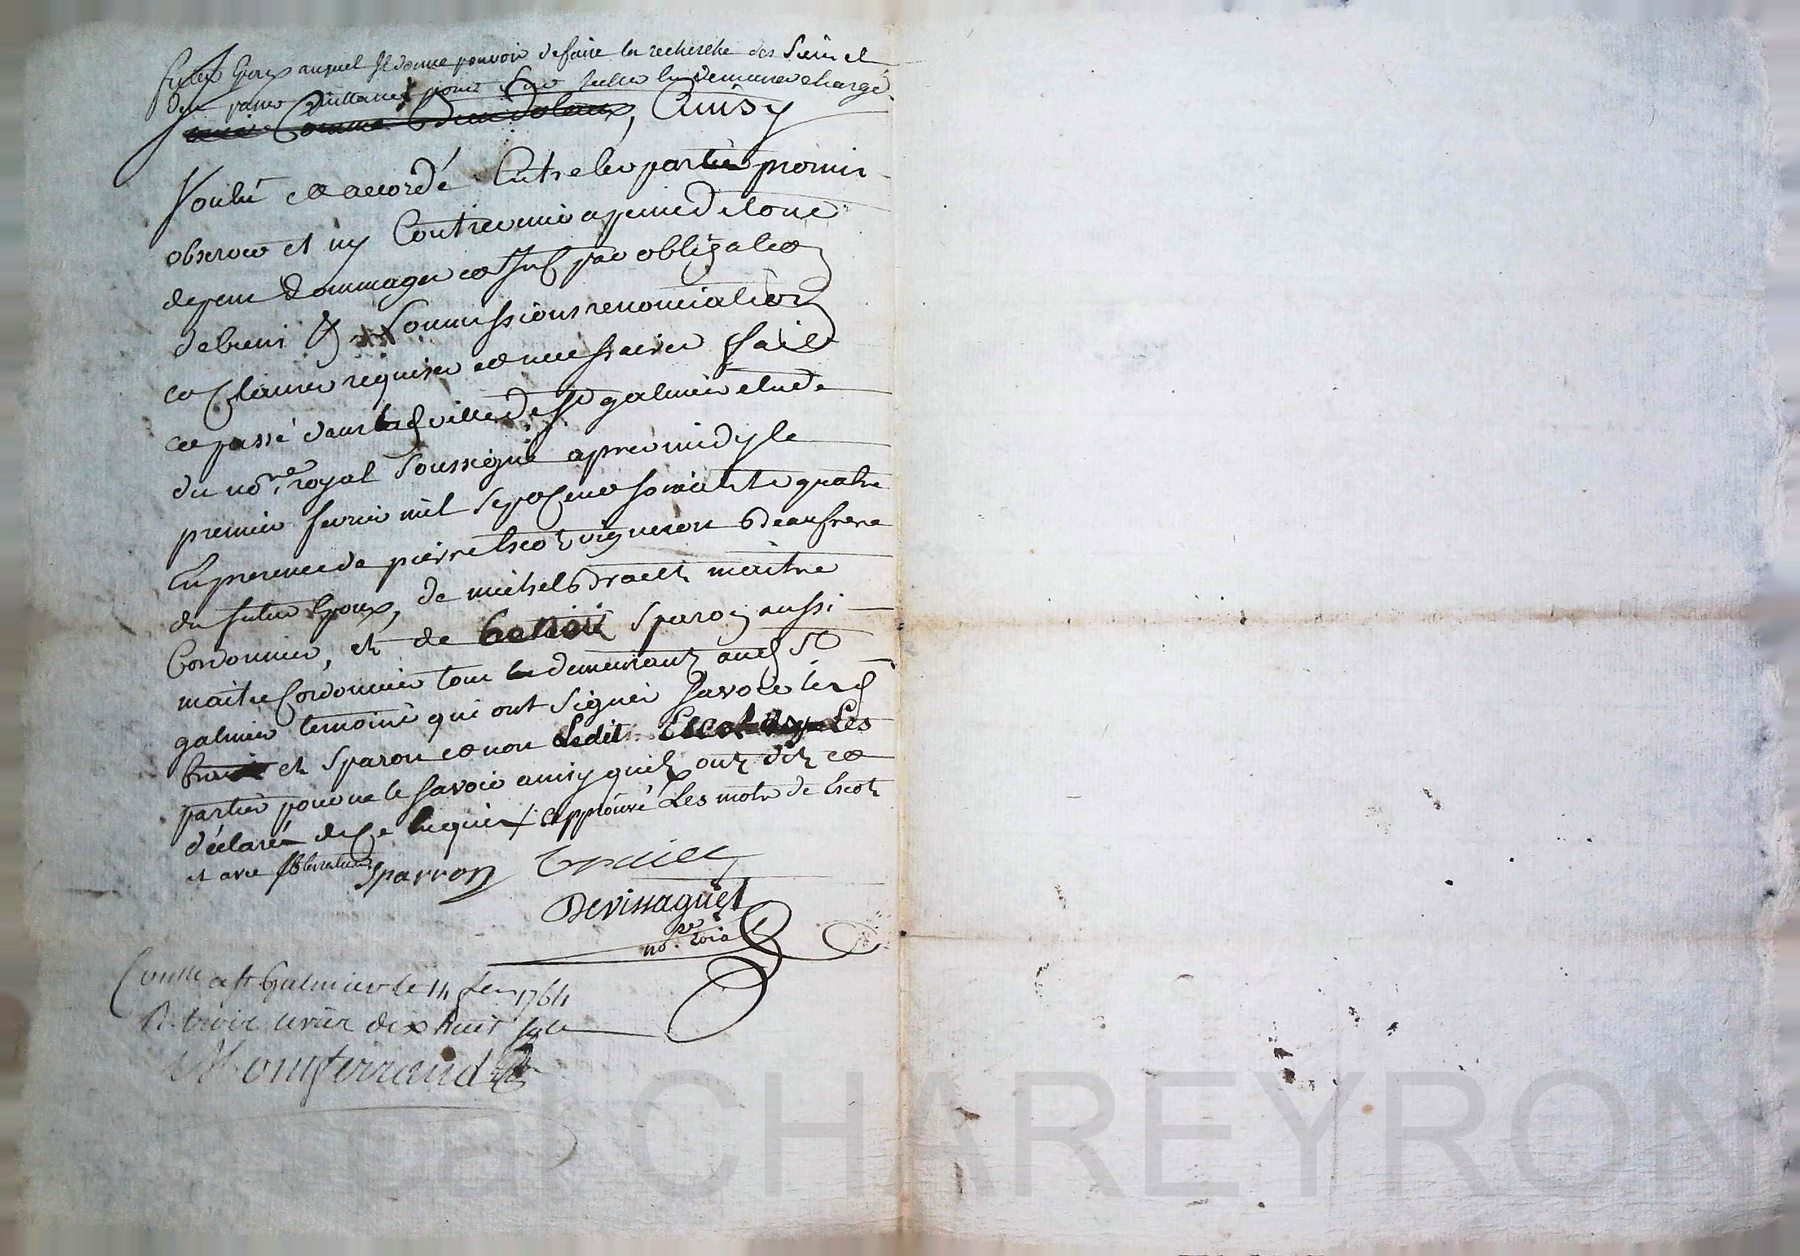 futur Epoux auquel Il donne pouvoir de faire la recherche des siens et
d'en passer quittance pour
comme , Ainsy
Voulu et accordé Entre les parties promis
observer et ny Contrevenir a peine de tous
depens Dommages et par obligation
de biens & soumissions renonciation
et Clauses requises et necessaires fait
et passé dans lad ville de St galmier etude
du nore royal soussigné apres midy le
premier fevrier mil Sept Cens soixante quatre
En presence de pierre Escot vigneron Beaufrere
du futur Epoux, de michel maitre
Cordonnier, et de Sparon aussi
maitre Cordonnier tous demeurant aud St
galmier temoins qui ont signé savoir lesd
et Sparon et non Ledit Escot ny Les
parties pour ne le savoir ainsy quils ont dit et
déclaré de ce Enquis / approuvé Les mots de Escot
et avec
Sparron
Devissaguet
nore roial
Conlle a St Galmier le 14 fer 1764
R. trois livres dix huit sols
Montferrand
pascal CHAREYRON